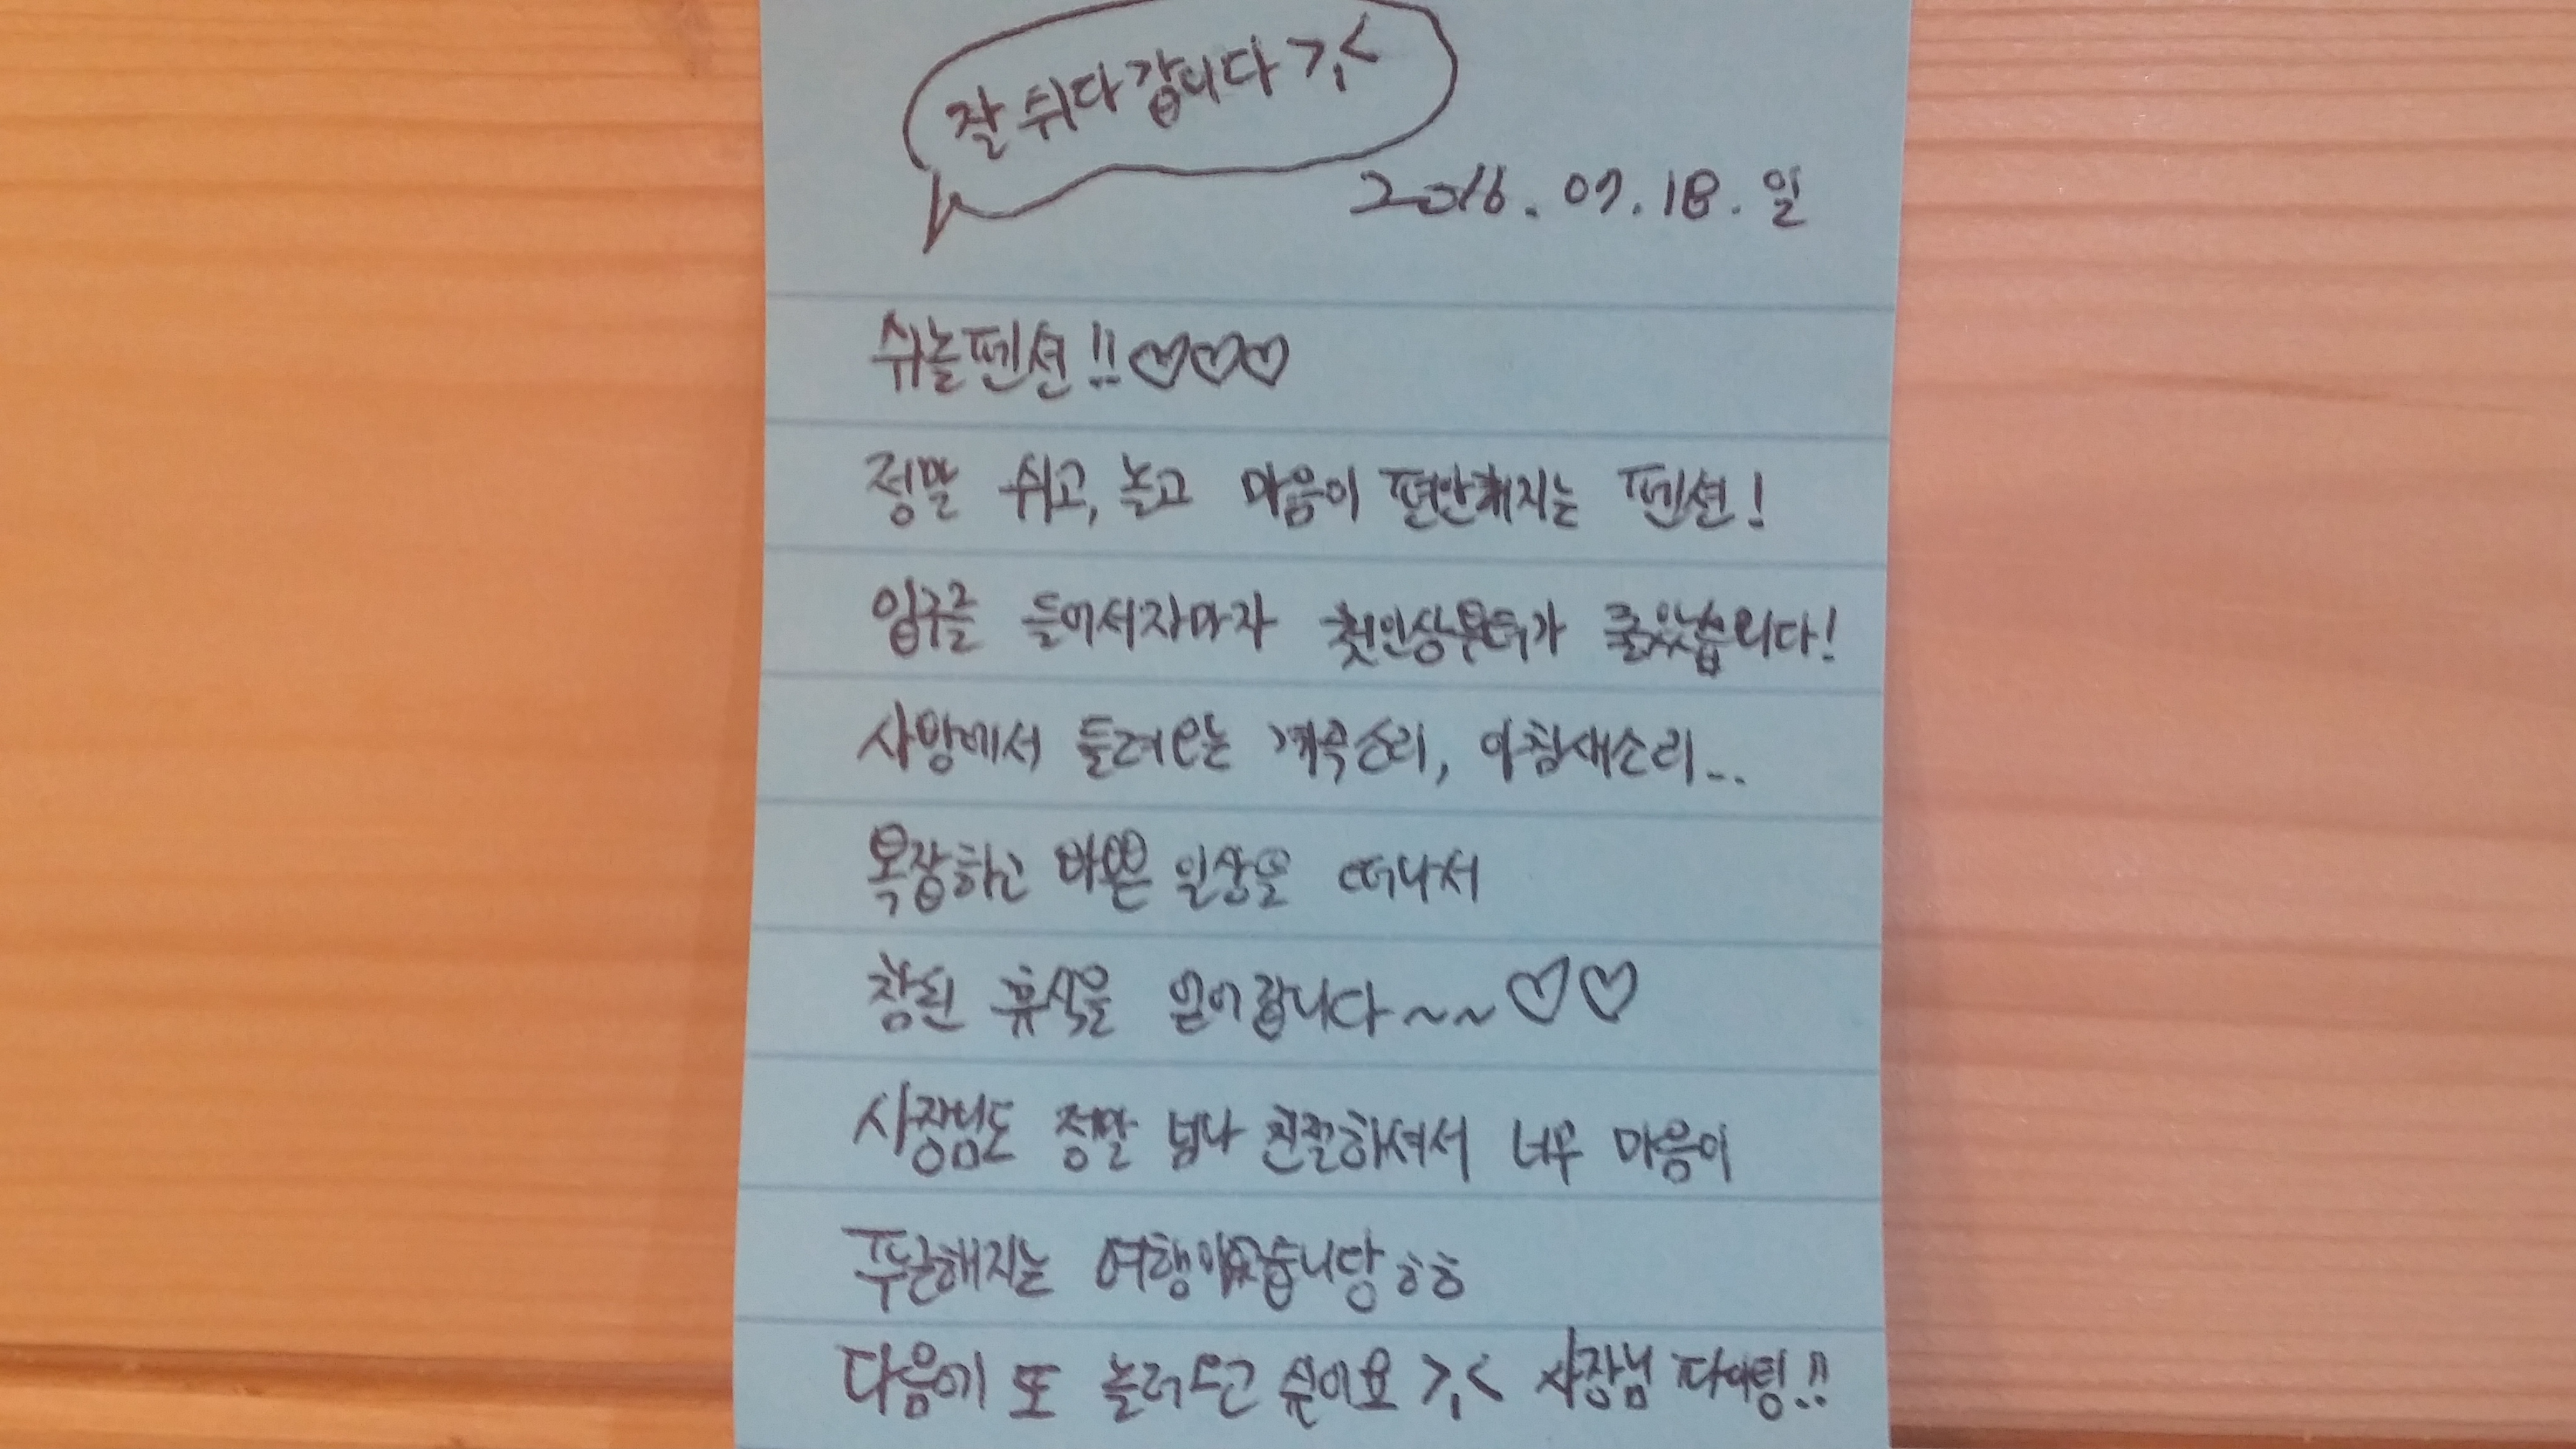 잘 쉬다 갑니다 >,<
2016. 07. 18. 일
쉬놀펜션!!♡♡♡
정말 쉬고, 놀고 마음이 편안해지는 펜션!
입구를 들어서자마자 첫인상부터가 좋았습니다!
사방에서 들려오는 계곡소리, 아침새소리...
복잡하고 바쁜 일상을 떠나서
참된 휴식을 얻어갑니다~~♡♡
사장님도 정말 넘나 친절하셔서 너무 마음이
푸근해지는 여행이었습니당ㅎㅎ
다음에 또 놀러오고 싶어요 >,< 사장님 파이팅!!